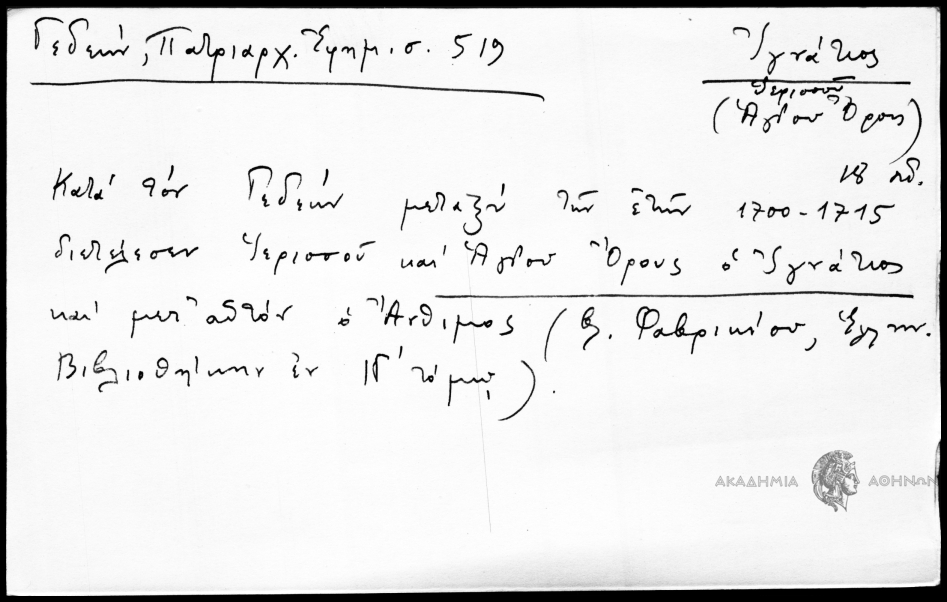 Γεδεών, Πατριαρχ. Ἐφημ. σ. 519
Ἰγνάτιος
Ἱερισσοῦ
(Ἁγίου Ὄρους)
18 αἰ.
Κατὰ τὸν Γεδεὼν μεταξὺ τῶν ἐτῶν 1700-1715
διετέλεσεν Ἱερισσοῦ καὶ Ἁγίου Ὄρους ὁ Ἰγνάτιος
καὶ μετ' αὐτὸν ὁ Ἄνθιμος (βλ. Φαβρικίου, Ἑλλην.
Βιβλιοθήκην ἐν ΙΓ' τόμῳ).
ΑΚΑΔΗΜΙΑ ΑΘΗΝΩΝ